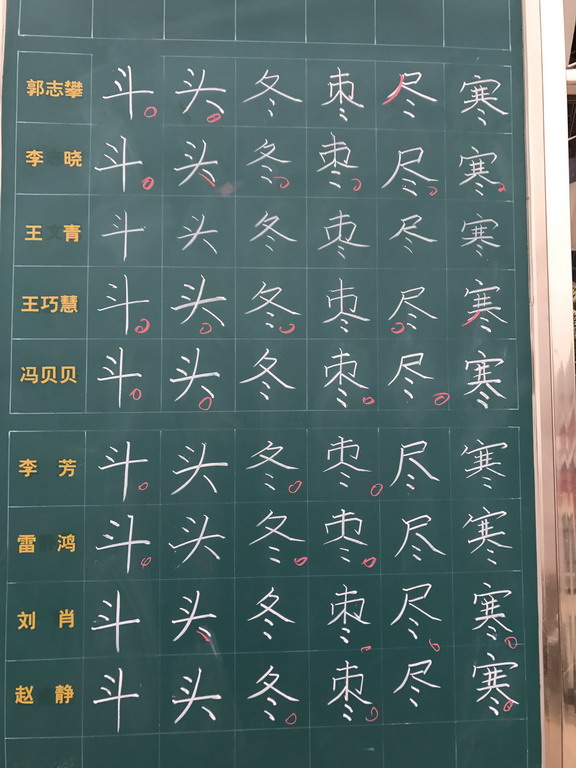 郭志攀 斗 头 冬 枣 尽 寒
李晓 斗 头 冬 枣 尽 寒
王青 斗 头 冬 枣 尽 寒
王巧慧 斗 头 冬 枣 尽 寒
冯贝贝 斗 头 冬 枣 尽 寒
李芳 斗 头 冬 枣 尽 寒
雷鸿 斗 头 冬 枣 尽 寒
刘肖 斗 头 冬 枣 尽 寒
赵静 斗 头 冬 枣 尽 寒